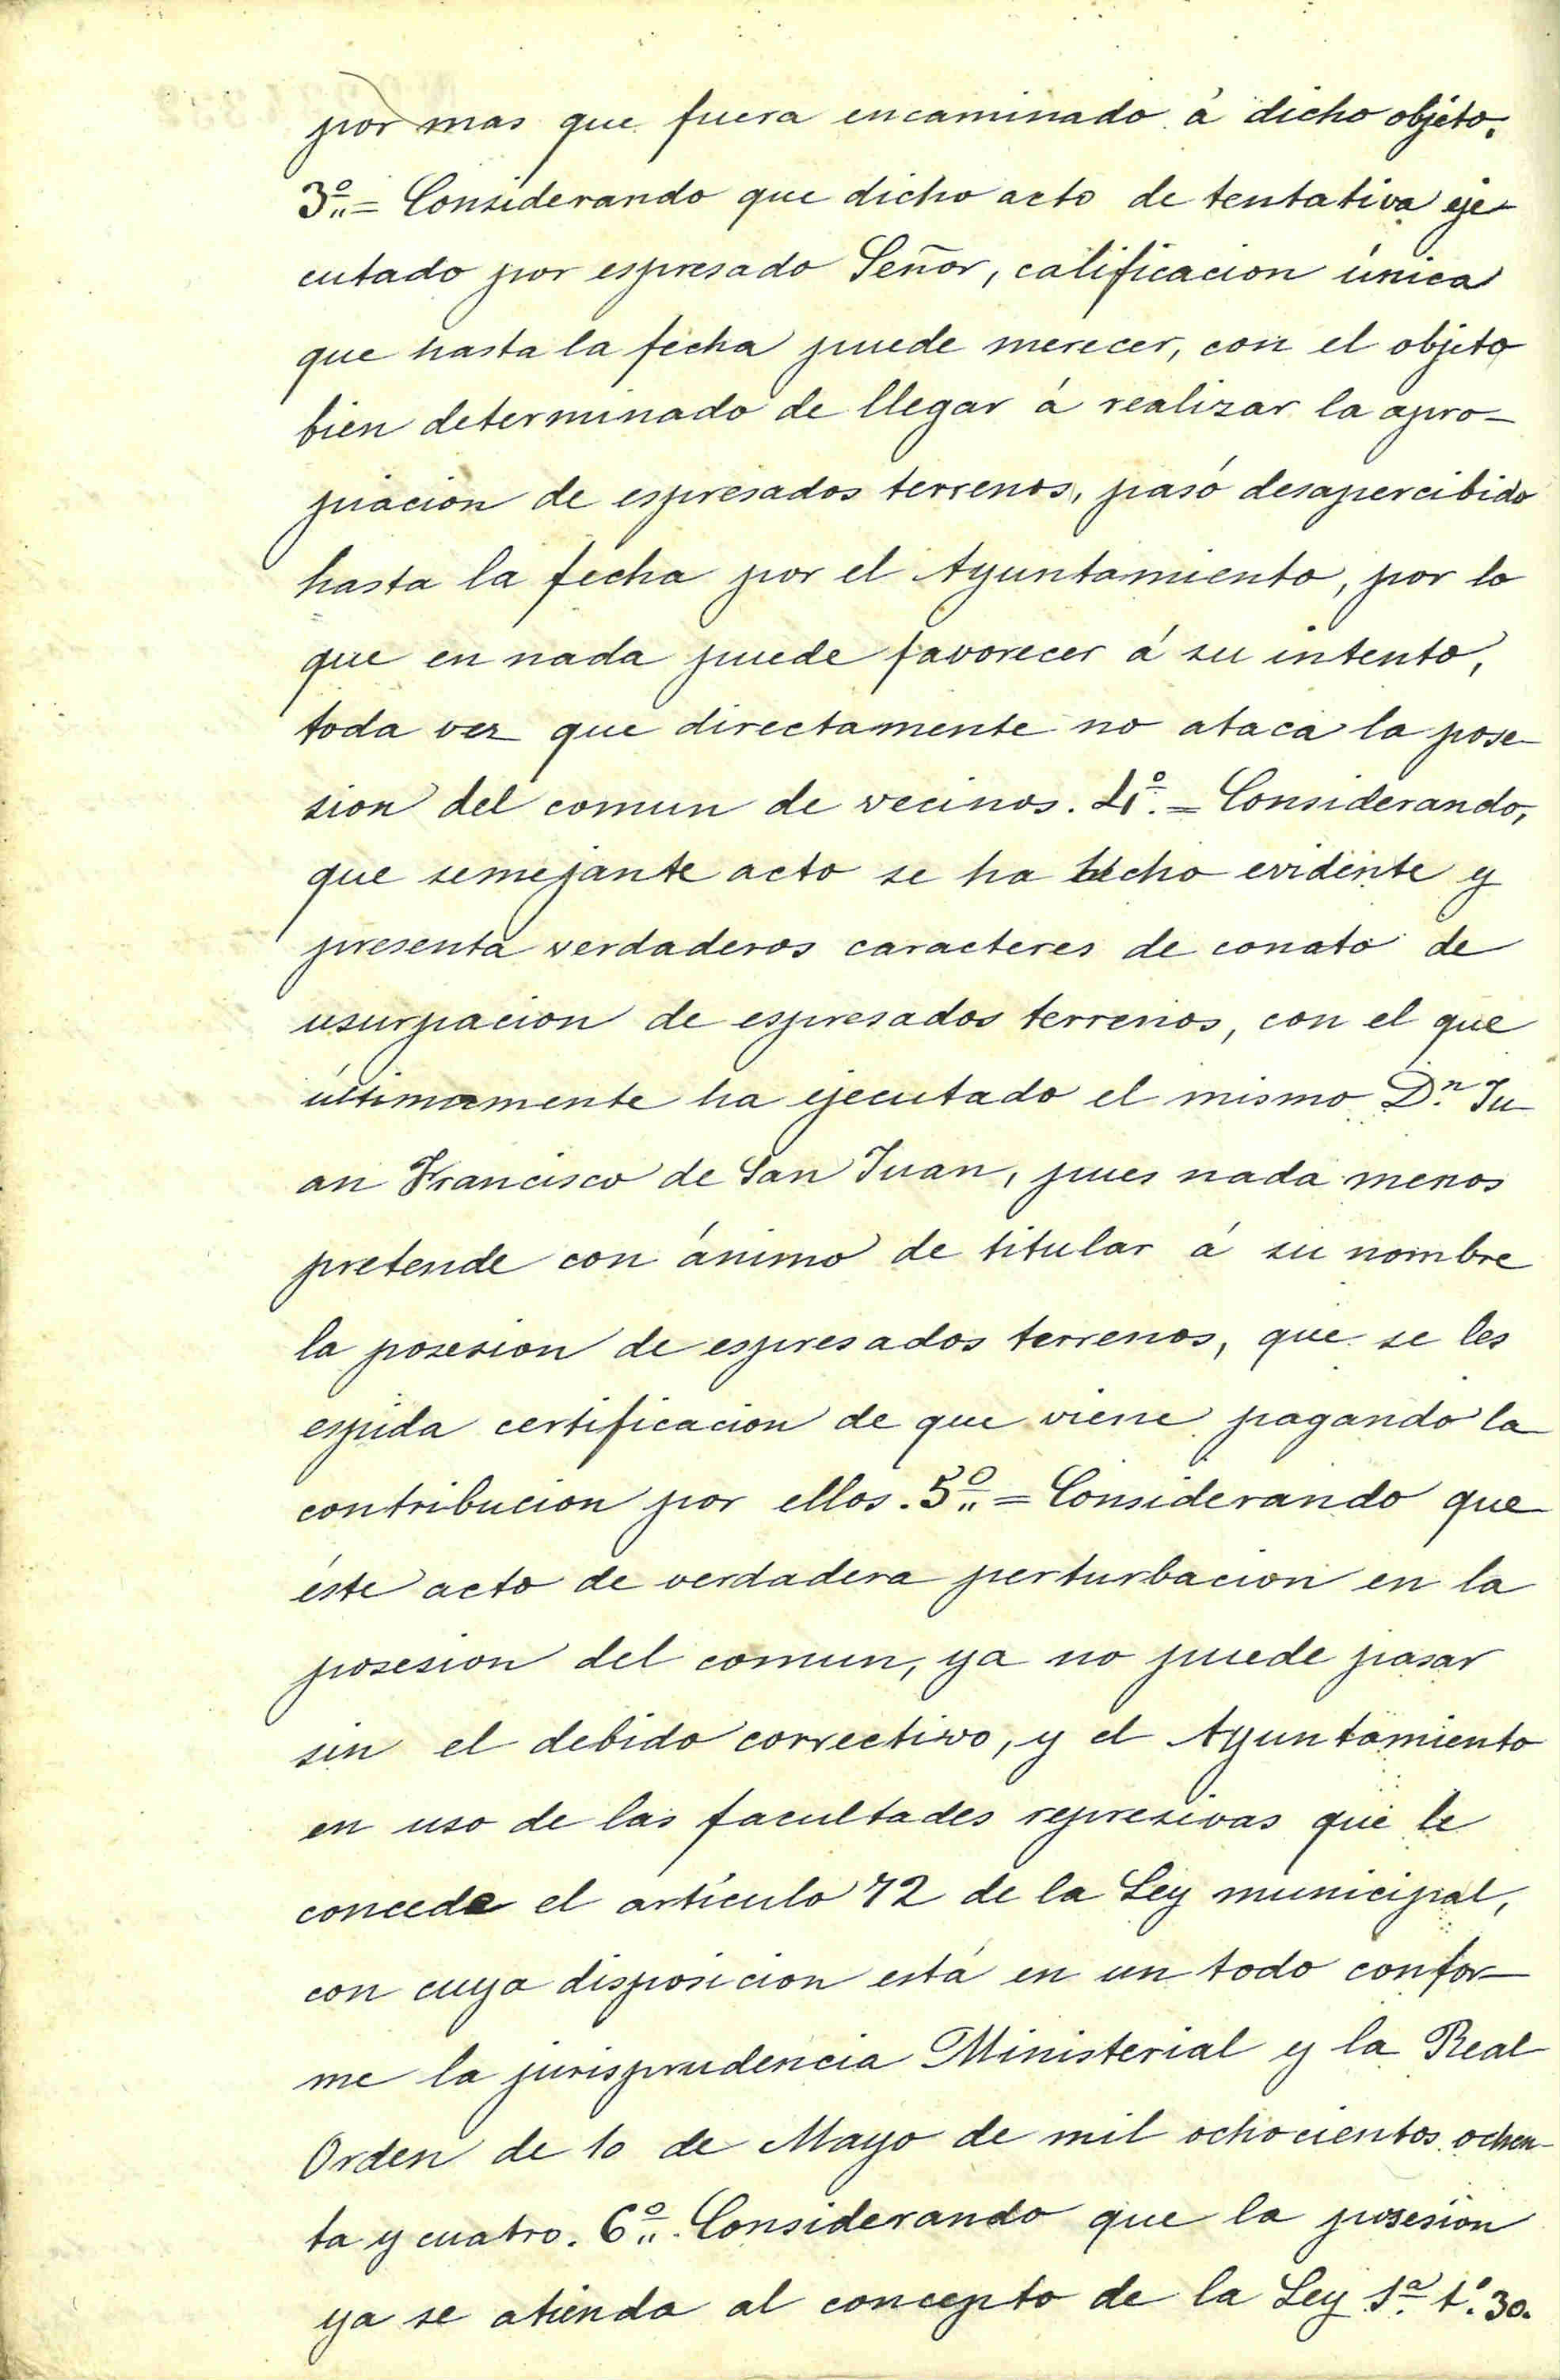 por mas que fuera encaminado á dicho objeto.
3º,, = Considerando que dicho acto de tentativa eje-
cutado por espresado Señor, calificacion única
que hasta la fecha puede merecer, con el objeto
bien determinado de llegar á realizar la apro-
piacion de espresados terrenos, pasó desapercibido
hasta la fecha por el Ayuntamiento, por lo
que en nada puede favorecer á su intento,
toda vez que directamente no ataca la pose-
sion del comun de vecinos. 4º. = Considerando,
que semejante acto se ha hecho evidente y
presenta verdaderos caracteres de conato de
usurpacion de espresados terrenos, con el que
últimamente ha ejecutado el mismo D.n Ju-
an Francisco de San Juan, pues nada menos
pretende con ánimo de titular á su nombre
la posesion de espresados terrenos, que se les
espida certificacion de que viene pagando la
contribucion por ellos. 5º,, = Considerando que
éste acto de verdadera perturbacion en la
posesion del comun, ya no puede pasar
sin el debido correctivo, y el Ayuntamiento
en uso de las facultades represivas que le
concede el artículo 72 de la Ley municipal,
con cuya disposicion está en un todo confor-
me la jurisprudencia Ministerial y la Real
Orden de 10 de Mayo de mil ochocientos ochen-
ta y cuatro. 6º,,. Considerando que la posesion
ya se atienda al concepto de la Ley 1ª. tº. 30.